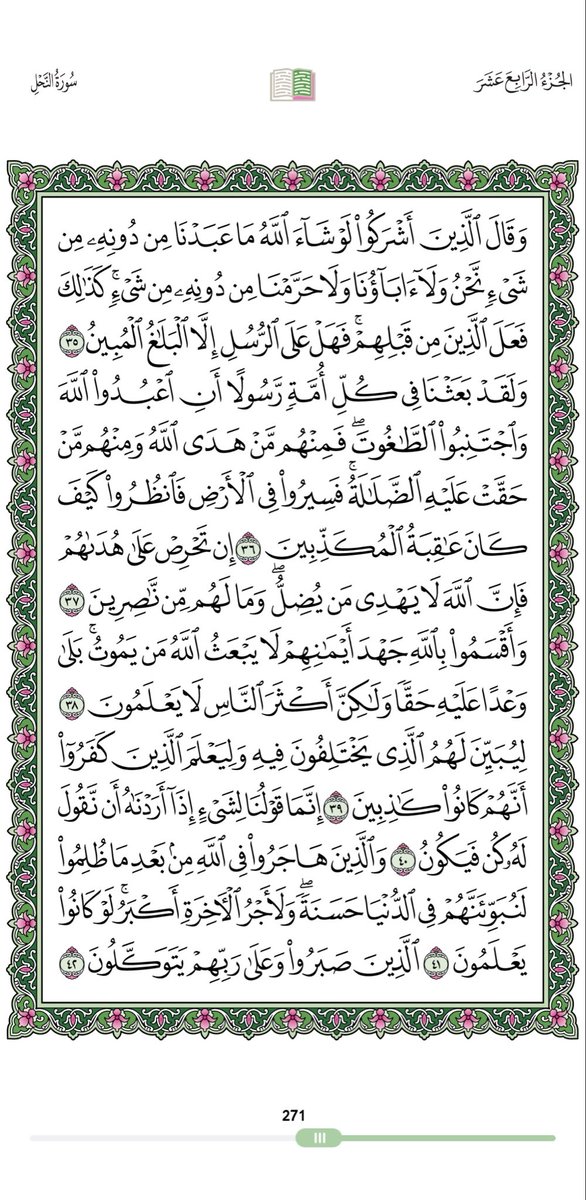 الجُزْءُ الرَّابِعَ عَشَرَ
سُورَةُ النَّحْلِ
وَقَالَ ٱلَّذِينَ أَشْرَكُوا۟ لَوْ شَآءَ ٱللَّهُ مَا عَبَدْنَا مِن دُونِهِۦ مِن
شَىْءٍ نَّحْنُ وَلَآ ءَابَآؤُنَا وَلَا حَرَّمْنَا مِن دُونِهِۦ مِن شَىْءٍ ۚ كَذَٰلِكَ
فَعَلَ ٱلَّذِينَ مِن قَبْلِهِمْ ۚ فَهَلْ عَلَى ٱلرُّسُلِ إِلَّا ٱلْبَلَٰغُ ٱلْمُبِينُ ٣٥
وَلَقَدْ بَعَثْنَا فِى كُلِّ أُمَّةٍ رَّسُولًا أَنِ ٱعْبُدُوا۟ ٱللَّهَ
وَٱجْتَنِبُوا۟ ٱلطَّٰغُوتَ ۖ فَمِنْهُم مَّنْ هَدَى ٱللَّهُ وَمِنْهُم مَّنْ
حَقَّتْ عَلَيْهِ ٱلضَّلَٰلَةُ ۚ فَسِيرُوا۟ فِى ٱلْأَرْضِ فَٱنظُرُوا۟ كَيْفَ
كَانَ عَٰقِبَةُ ٱلْمُكَذِّبِينَ ٣٦ إِن تَحْرِصْ عَلَىٰ هُدَىٰهُمْ
فَإِنَّ ٱللَّهَ لَا يَهْدِى مَن يُضِلُّ ۖ وَمَا لَهُم مِّن نَّٰصِرِينَ ٣٧
وَأَقْسَمُوا۟ بِٱللَّهِ جَهْدَ أَيْمَٰنِهِمْ لَا يَبْعَثُ ٱللَّهُ مَن يَمُوتُ ۚ بَلَىٰ
وَعْدًا عَلَيْهِ حَقًّا وَلَٰكِنَّ أَكْثَرَ ٱلنَّاسِ لَا يَعْلَمُونَ ٣٨
لِيُبَيِّنَ لَهُمُ ٱلَّذِى يَخْتَلِفُونَ فِيهِ وَلِيَعْلَمَ ٱلَّذِينَ كَفَرُوٓا۟
أَنَّهُمْ كَانُوا۟ كَٰذِبِينَ ٣٩ إِنَّمَا قَوْلُنَا لِشَىْءٍ إِذَآ أَرَدْنَٰهُ أَن نَّقُولَ
لَهُۥ كُن فَيَكُونُ ٤٠ وَٱلَّذِينَ هَاجَرُوا۟ فِى ٱللَّهِ مِنۢ بَعْدِ مَا ظُلِمُوا۟
لَنُبَوِّئَنَّهُمْ فِى ٱلدُّنْيَا حَسَنَةً ۖ وَلَأَجْرُ ٱلْءَاخِرَةِ أَكْبَرُ ۚ لَوْ كَانُوا۟
يَعْلَمُونَ ٤١ ٱلَّذِينَ صَبَرُوا۟ وَعَلَىٰ رَبِّهِمْ يَتَوَكَّلُونَ ٤٢
271